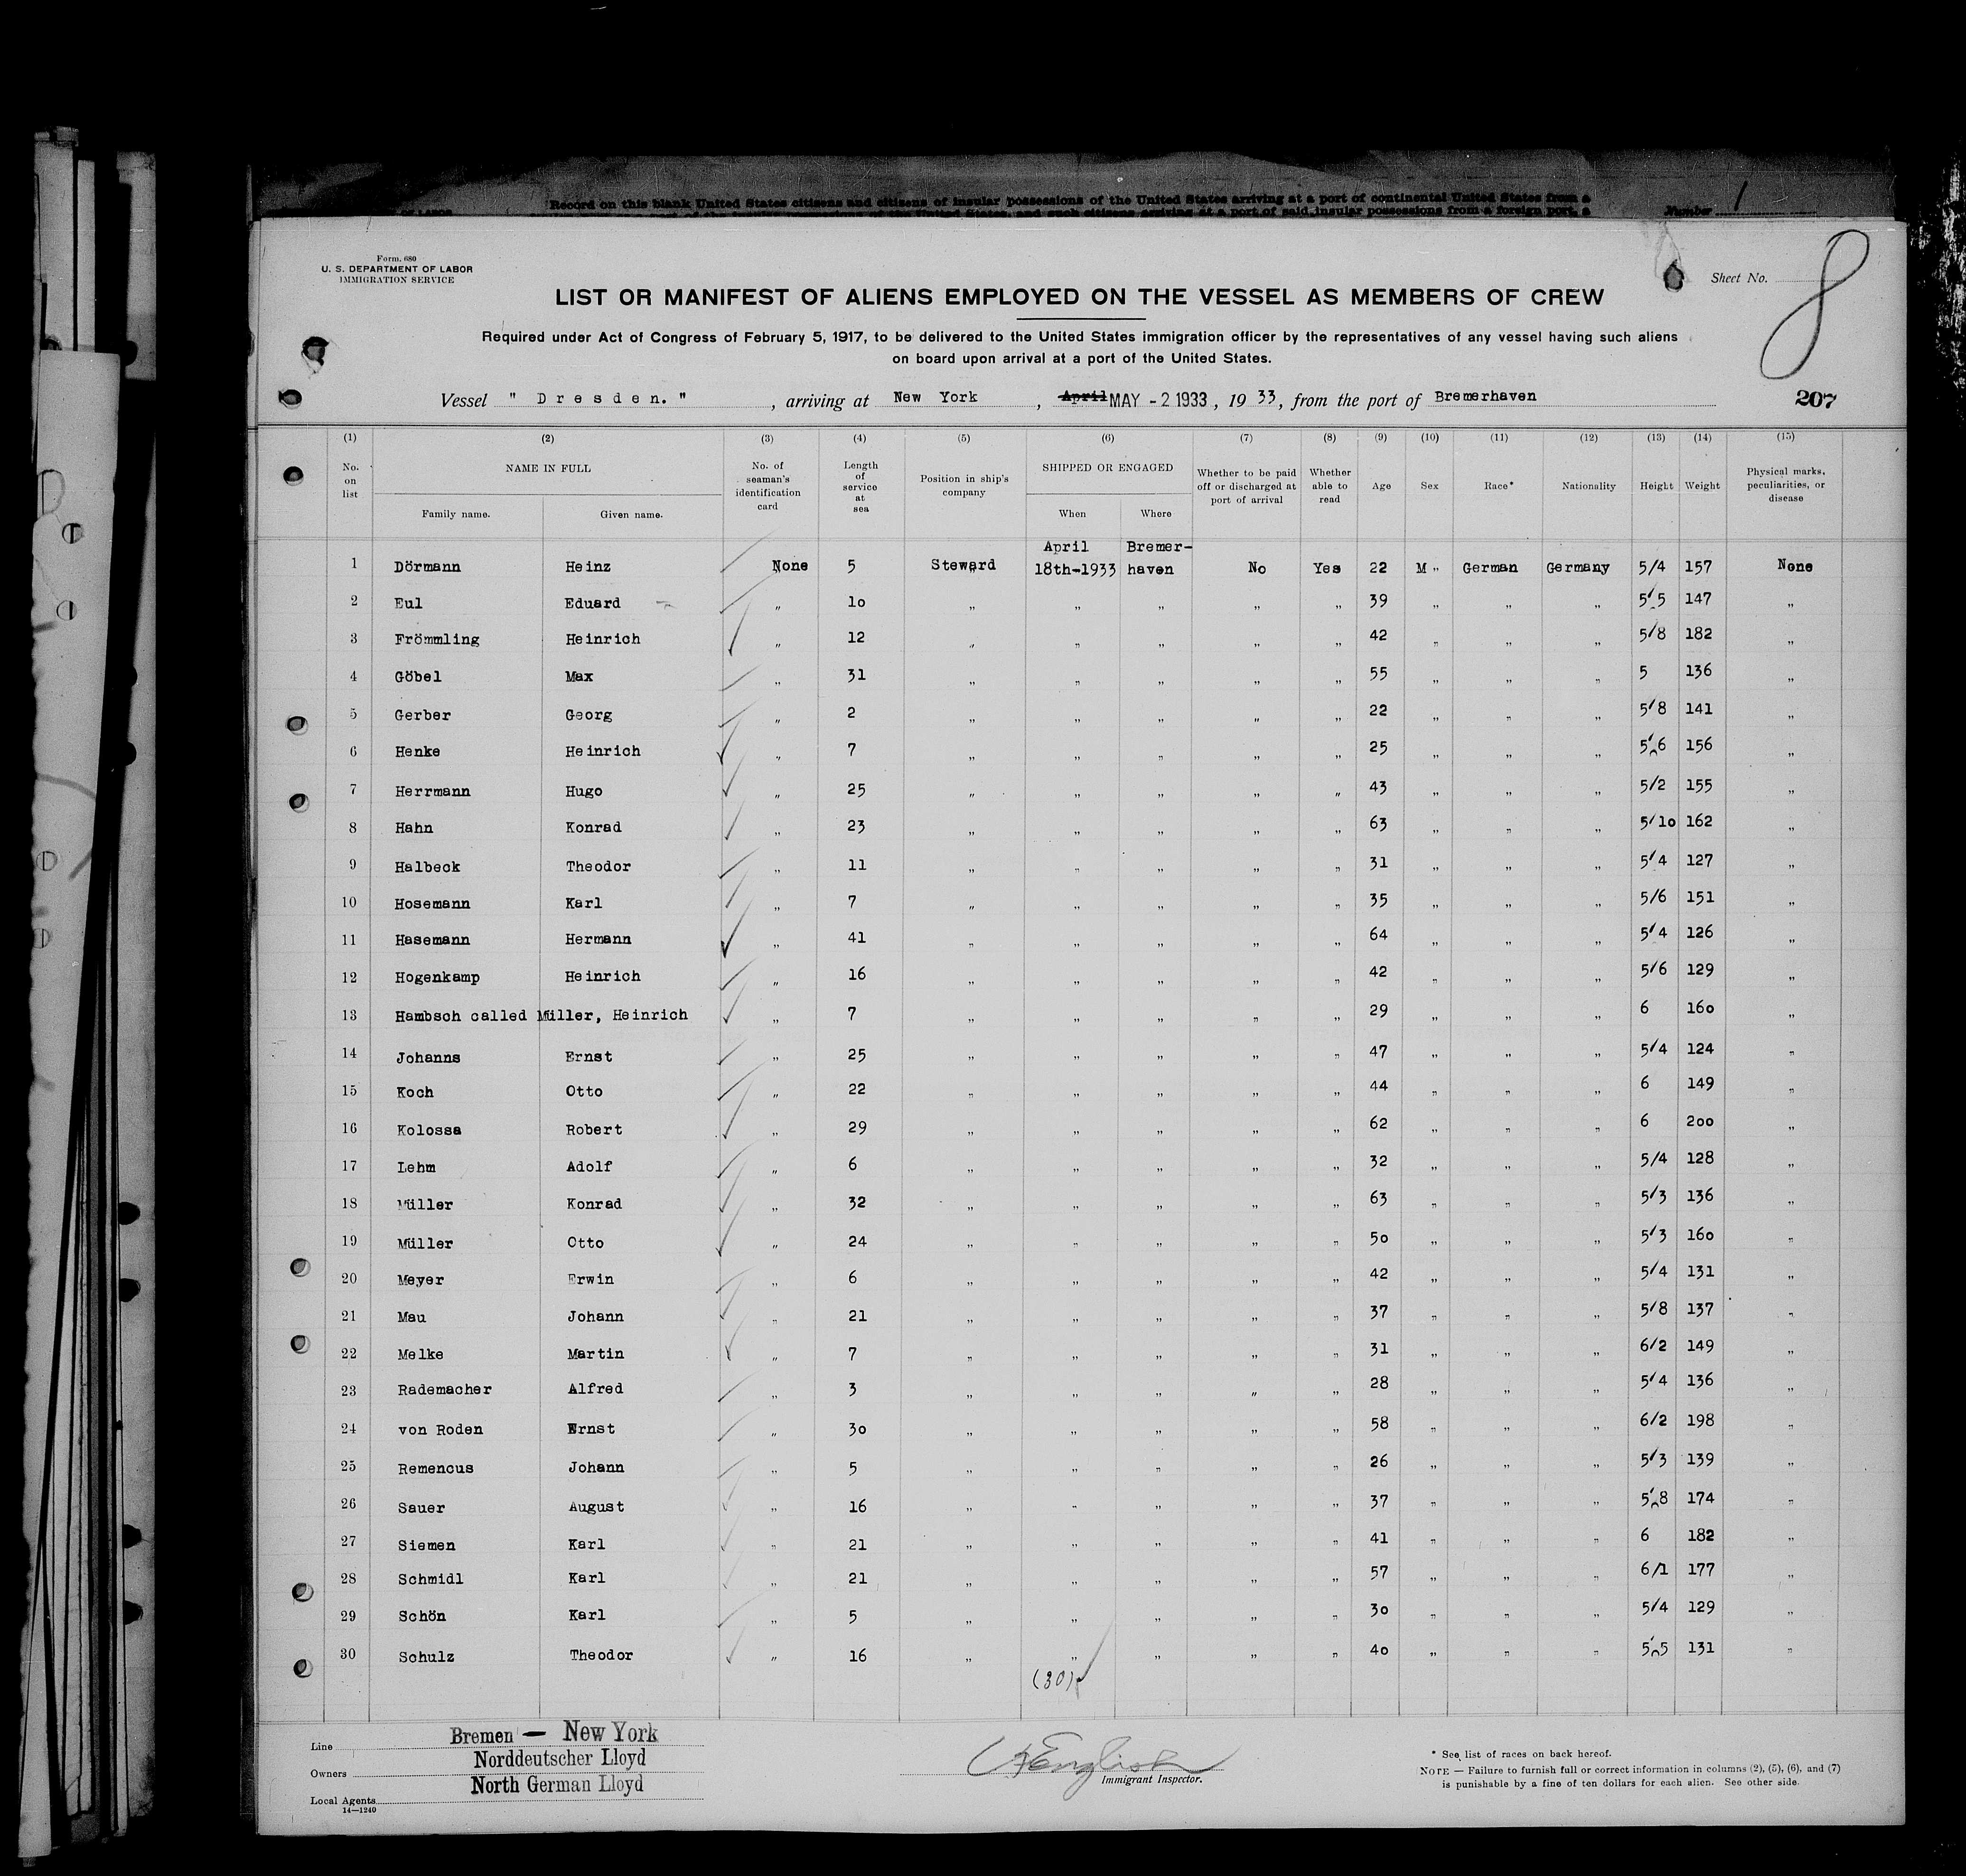 Record on this blank United States citizens and citizens of insular possessions of the United States arriving at a port of continental United States from a
Number 1
Form. 680
U. S. DEPARTMENT OF LABOR
IMMIGRATION SERVICE
Sheet No. 8
LIST OR MANIFEST OF ALIENS EMPLOYED ON THE VESSEL AS MEMBERS OF CREW
Required under Act of Congress of February 5, 1917, to be delivered to the United States immigration officer by the representatives of any vessel having such aliens
on board upon arrival at a port of the United States.
Vessel " Dresden. ", arriving at New York, April MAY - 2 1933, 19 33, from the port of Bremerhaven 207
(1) (2) (3) (4) (5) (6) (7) (8) (9) (10) (11) (12) (13) (14) (15)
No. on list NAME IN FULL Family name. Given name. No. of seaman's identification card Length of service at sea Position in ship's company SHIPPED OR ENGAGED When Where Whether to be paid off or discharged at port of arrival Whether able to read Age Sex Race* Nationality Height Weight Physical marks, peculiarities, or disease
1 Dörmann Heinz None 5 Steward April 18th-1933 Bremer-haven No Yes 22 M " German Germany 5/4 157 None
2 Eul Eduard " 10 " " " " " 39 " " " 5/5 147 "
3 Frömmling Heinrich " 12 " " " " " 42 " " " 5/8 182 "
4 Göbel Max " 31 " " " " " 55 " " " 5 136 "
5 Gerber Georg " 2 " " " " " 22 " " " 5/8 141 "
6 Henke Heinrich " 7 " " " " " 25 " " " 5/6 156 "
7 Herrmann Hugo " 25 " " " " " 43 " " " 5/2 155 "
8 Hahn Konrad " 23 " " " " " 63 " " " 5/10 162 "
9 Halbeck Theodor " 11 " " " " " 31 " " " 5/4 127 "
10 Hosemann Karl " 7 " " " " " 35 " " " 5/6 151 "
11 Hasemann Hermann " 41 " " " " " 64 " " " 5/4 126 "
12 Hogenkamp Heinrich " 16 " " " " " 42 " " " 5/6 129 "
13 Hambsch called Müller, Heinrich " 7 " " " " " 29 " " " 6 160 "
14 Johanns Ernst " 25 " " " " " 47 " " " 5/4 124 "
15 Koch Otto " 22 " " " " " 44 " " " 6 149 "
16 Kolossa Robert " 29 " " " " " 62 " " " 6 200 "
17 Lehm Adolf " 6 " " " " " 32 " " " 5/4 128 "
18 Müller Konrad " 32 " " " " " 63 " " " 5/3 136 "
19 Müller Otto " 24 " " " " " 50 " " " 5/3 160 "
20 Meyer Erwin " 6 " " " " " 42 " " " 5/4 131 "
21 Mau Johann " 21 " " " " " 37 " " " 5/8 137 "
22 Melke Martin " 7 " " " " " 31 " " " 6/2 149 "
23 Rademacher Alfred " 3 " " " " " 28 " " " 5/4 136 "
24 von Roden Ernst " 30 " " " " " 58 " " " 6/2 198 "
25 Remencus Johann " 5 " " " " " 26 " " " 5/3 139 "
26 Sauer August " 16 " " " " " 37 " " " 5/8 174 "
27 Siemen Karl " 21 " " " " " 41 " " " 6 182 "
28 Schmidl Karl " 21 " " " " " 57 " " " 6/1 177 "
29 Schön Karl " 5 " " " " " 30 " " " 5/4 129 "
30 Schulz Theodor " 16 " " " " " 40 " " " 5/5 131 "
(30)
Line Bremen — New York
Owners Norddeutscher Lloyd
Local Agents North German Lloyd
14—1240
English
Immigrant Inspector.
* See list of races on back hereof.
NOTE — Failure to furnish full or correct information in columns (2), (5), (6), and (7)
is punishable by a fine of ten dollars for each alien. See other side.